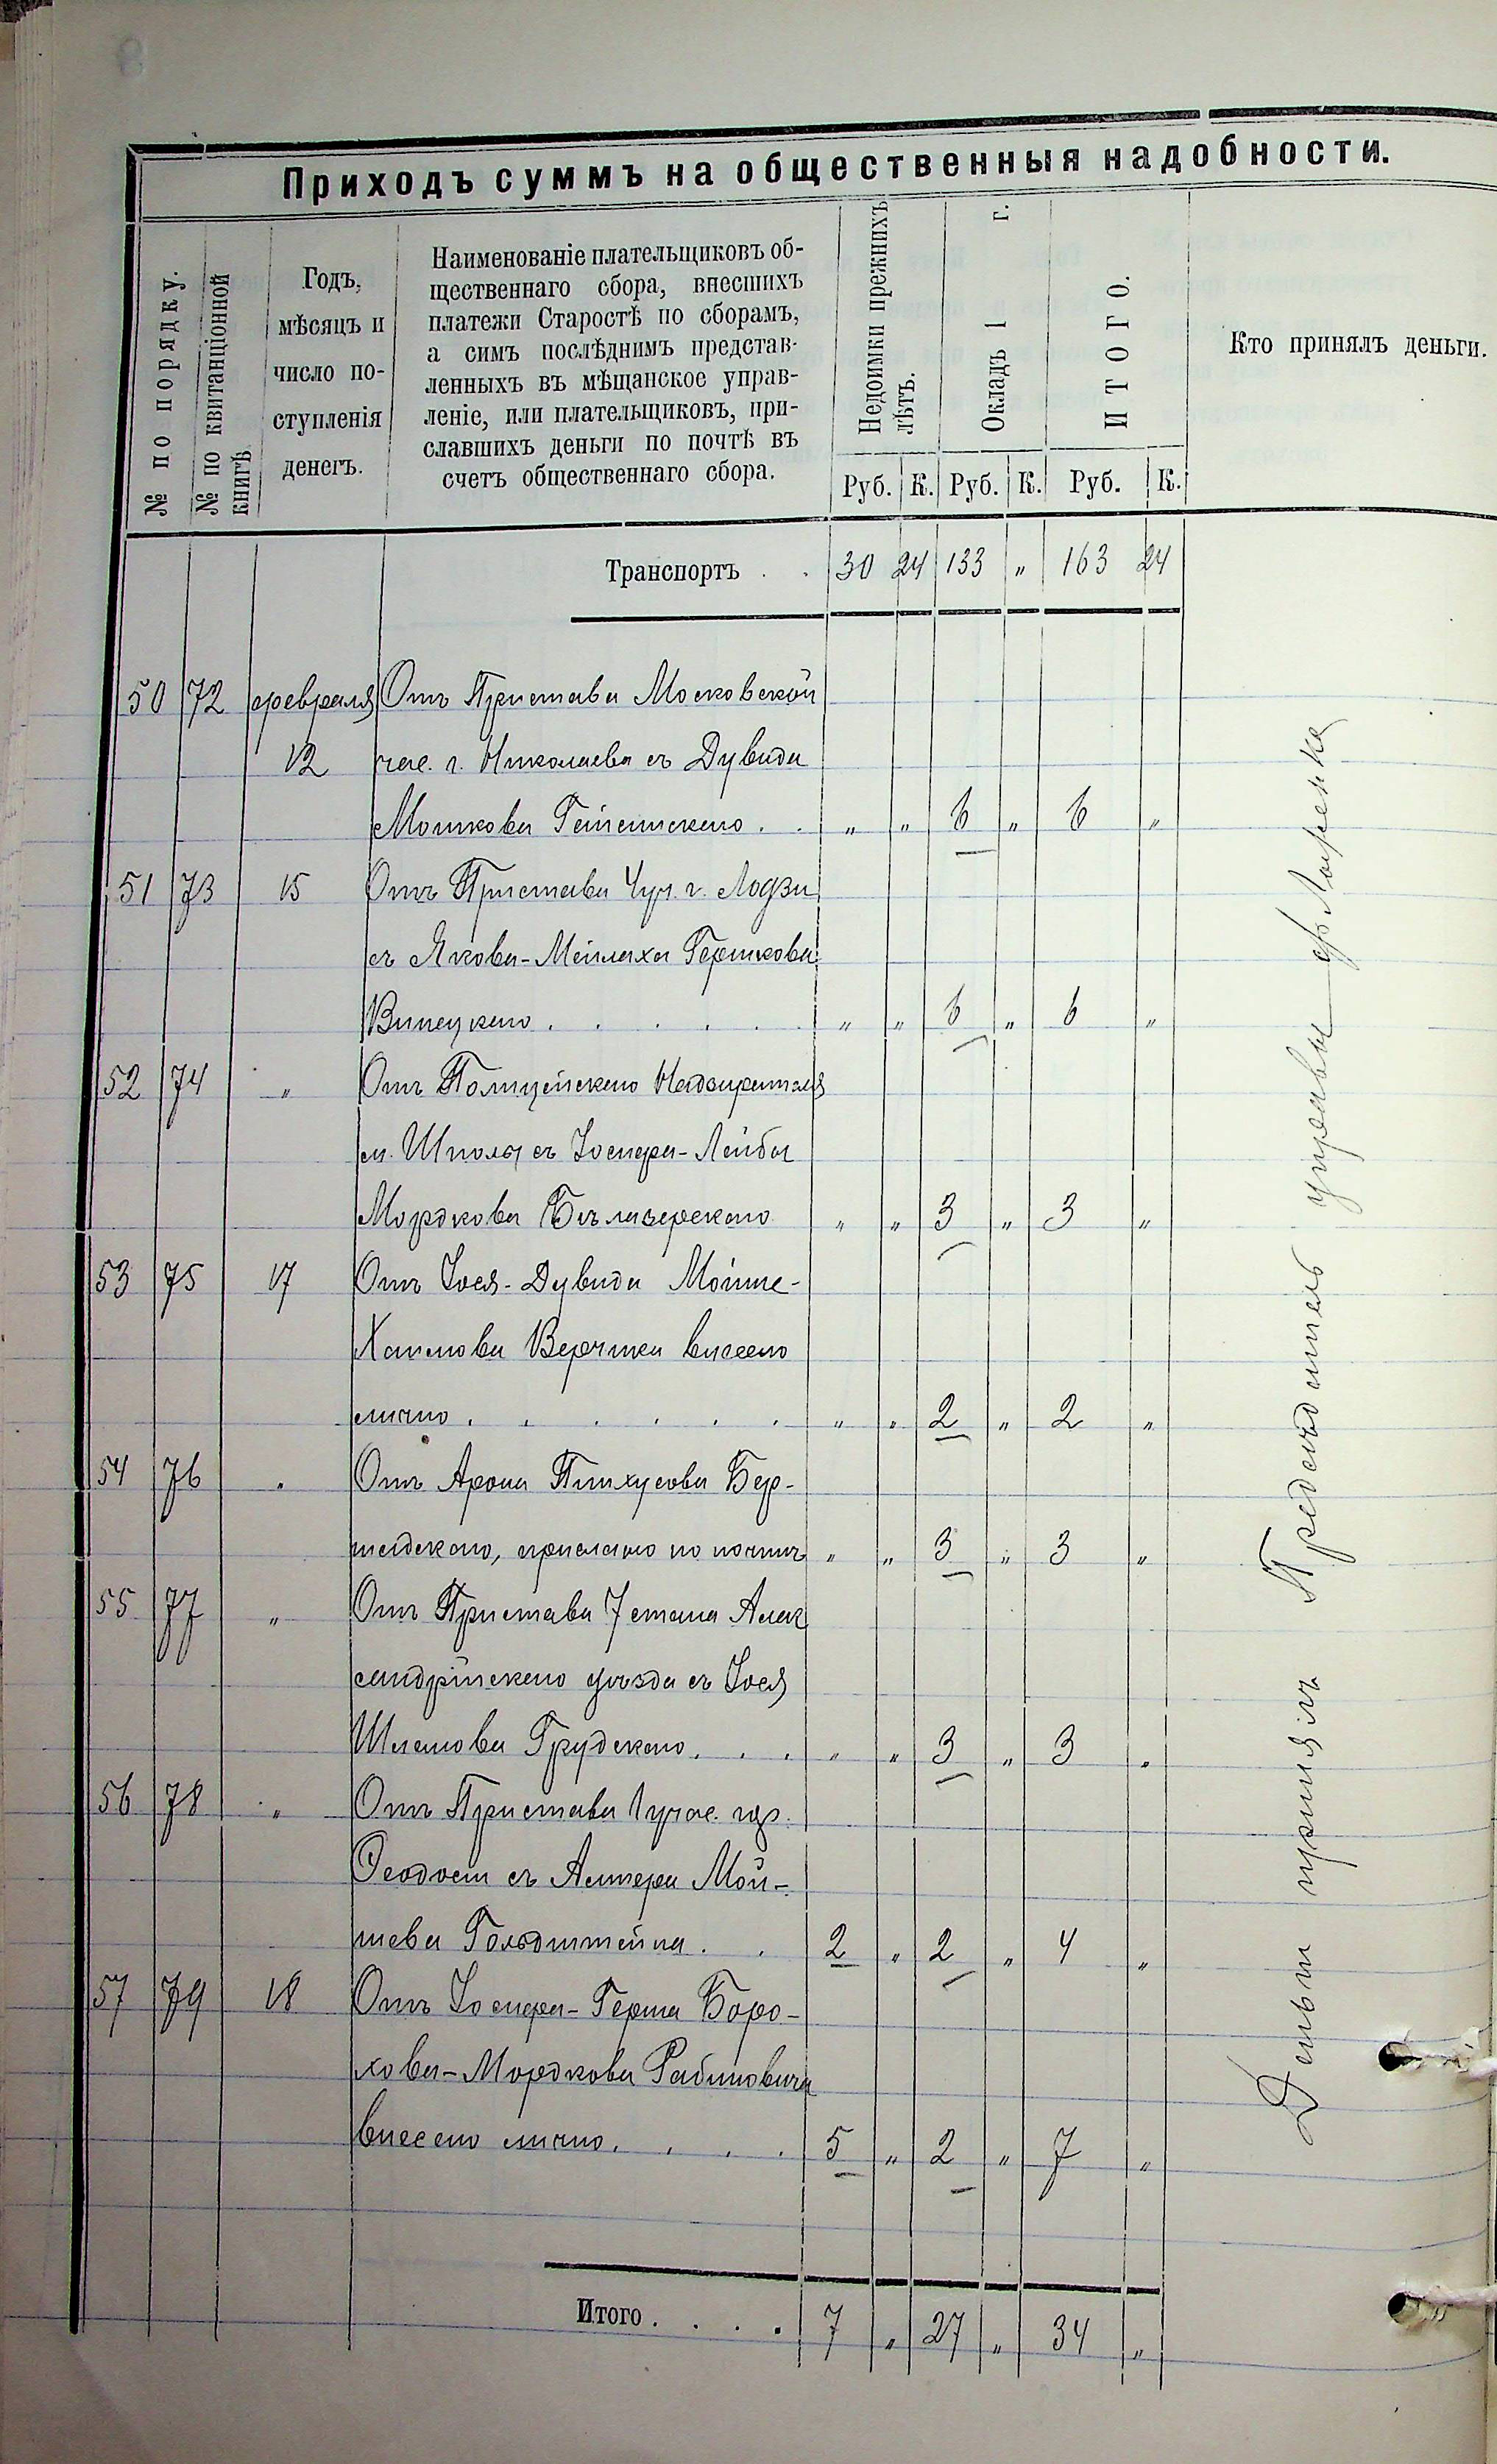 Приходъ суммъ на общественныя надобности.
№ по порядку.
№ по квитанціонной книгѣ
Годъ,
мѣсяцъ и
число по-
ступленія
денегъ.
Наименованіе плательщиковъ об-
щественнаго сбора, внесшихъ
платежи Старостѣ по сборамъ,
а симъ послѣднимъ представ-
ленныхъ въ мѣщанское управ-
леніе, или плательщиковъ, при-
славшихъ деньги по почтѣ въ
счетъ общественнаго сбора.
Недоимки прежнихъ лѣтъ.
Окладъ 1 г.
ИТОГО.
Кто принялъ деньги.
Руб. К. Руб. К. Руб. К.
Транспортъ . . 30 24 133 „ 163 24
50 72 февраля Отъ Пристава Московской
12 час. г. Николаева съ Дувида
Мошкова . . „ „ 6 „ 6 „
51 73 15 Отъ Пристава 4 уч. г. Лодзи
съ Якова-Мейлаха Гершкова
Винецкаго . . . . . „ „ 6 „ 6 „
52 74 „ Отъ Полицейскаго Надзирателя
м. Шпола съ Іосифа-Лейбы
Мордкова Бѣлазерскаго „ „ 3 „ 3 „
53 75 17 Отъ Іося-Дувида Мойше-
Хаимова внесено
лично . . . . . . „ „ 2 „ 2 „
54 76 „ Отъ Арона Пинхусова Бер-
шадскаго, прислано по почтѣ „ „ 3 „ 3 „
55 77 „ Отъ Пристава 7 стана Алек
сандрійскаго уѣзда съ Іося
Шлемова Грудскаго . . . „ „ 3 „ 3 „
56 78 „ Отъ Пристава 1 учас. гор.
Феодосіи съ Алтера Мой-
шева Гольдштейна . . 2 „ 2 „ 4 „
57 79 18 Отъ Іосифа-Герша Боро-
хова-Мордкова Рабиновича
внесено лично . . . . 5 „ 2 „ 7 „
Итого . . . . 7 „ 27 „ 34 „
Деньги принялъ Предсѣдатель управы